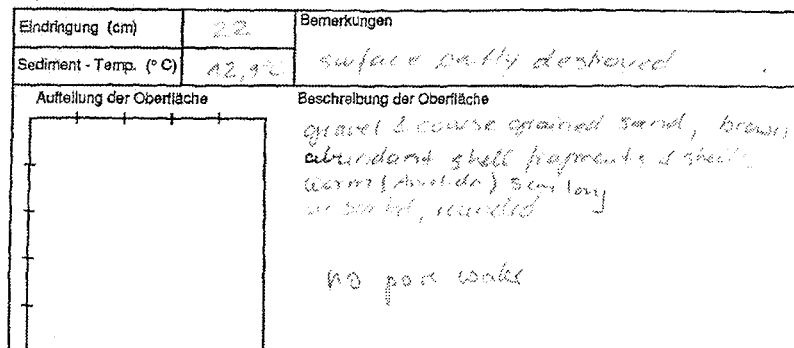 Eindringung (cm) 22 Bemerkungen
Sediment - Temp. (° C) 12,9°C surface partly destroyed
Aufteilung der Oberfläche Beschreibung der Oberfläche
gravel & coarse grained sand, brown
abundant shell fragments & shells
worm (Anelida) 5cm long
unsorted, rounded
no pore water